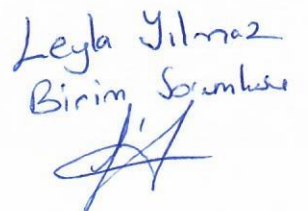 Leyla Yılmaz
Birim Sorumlusu